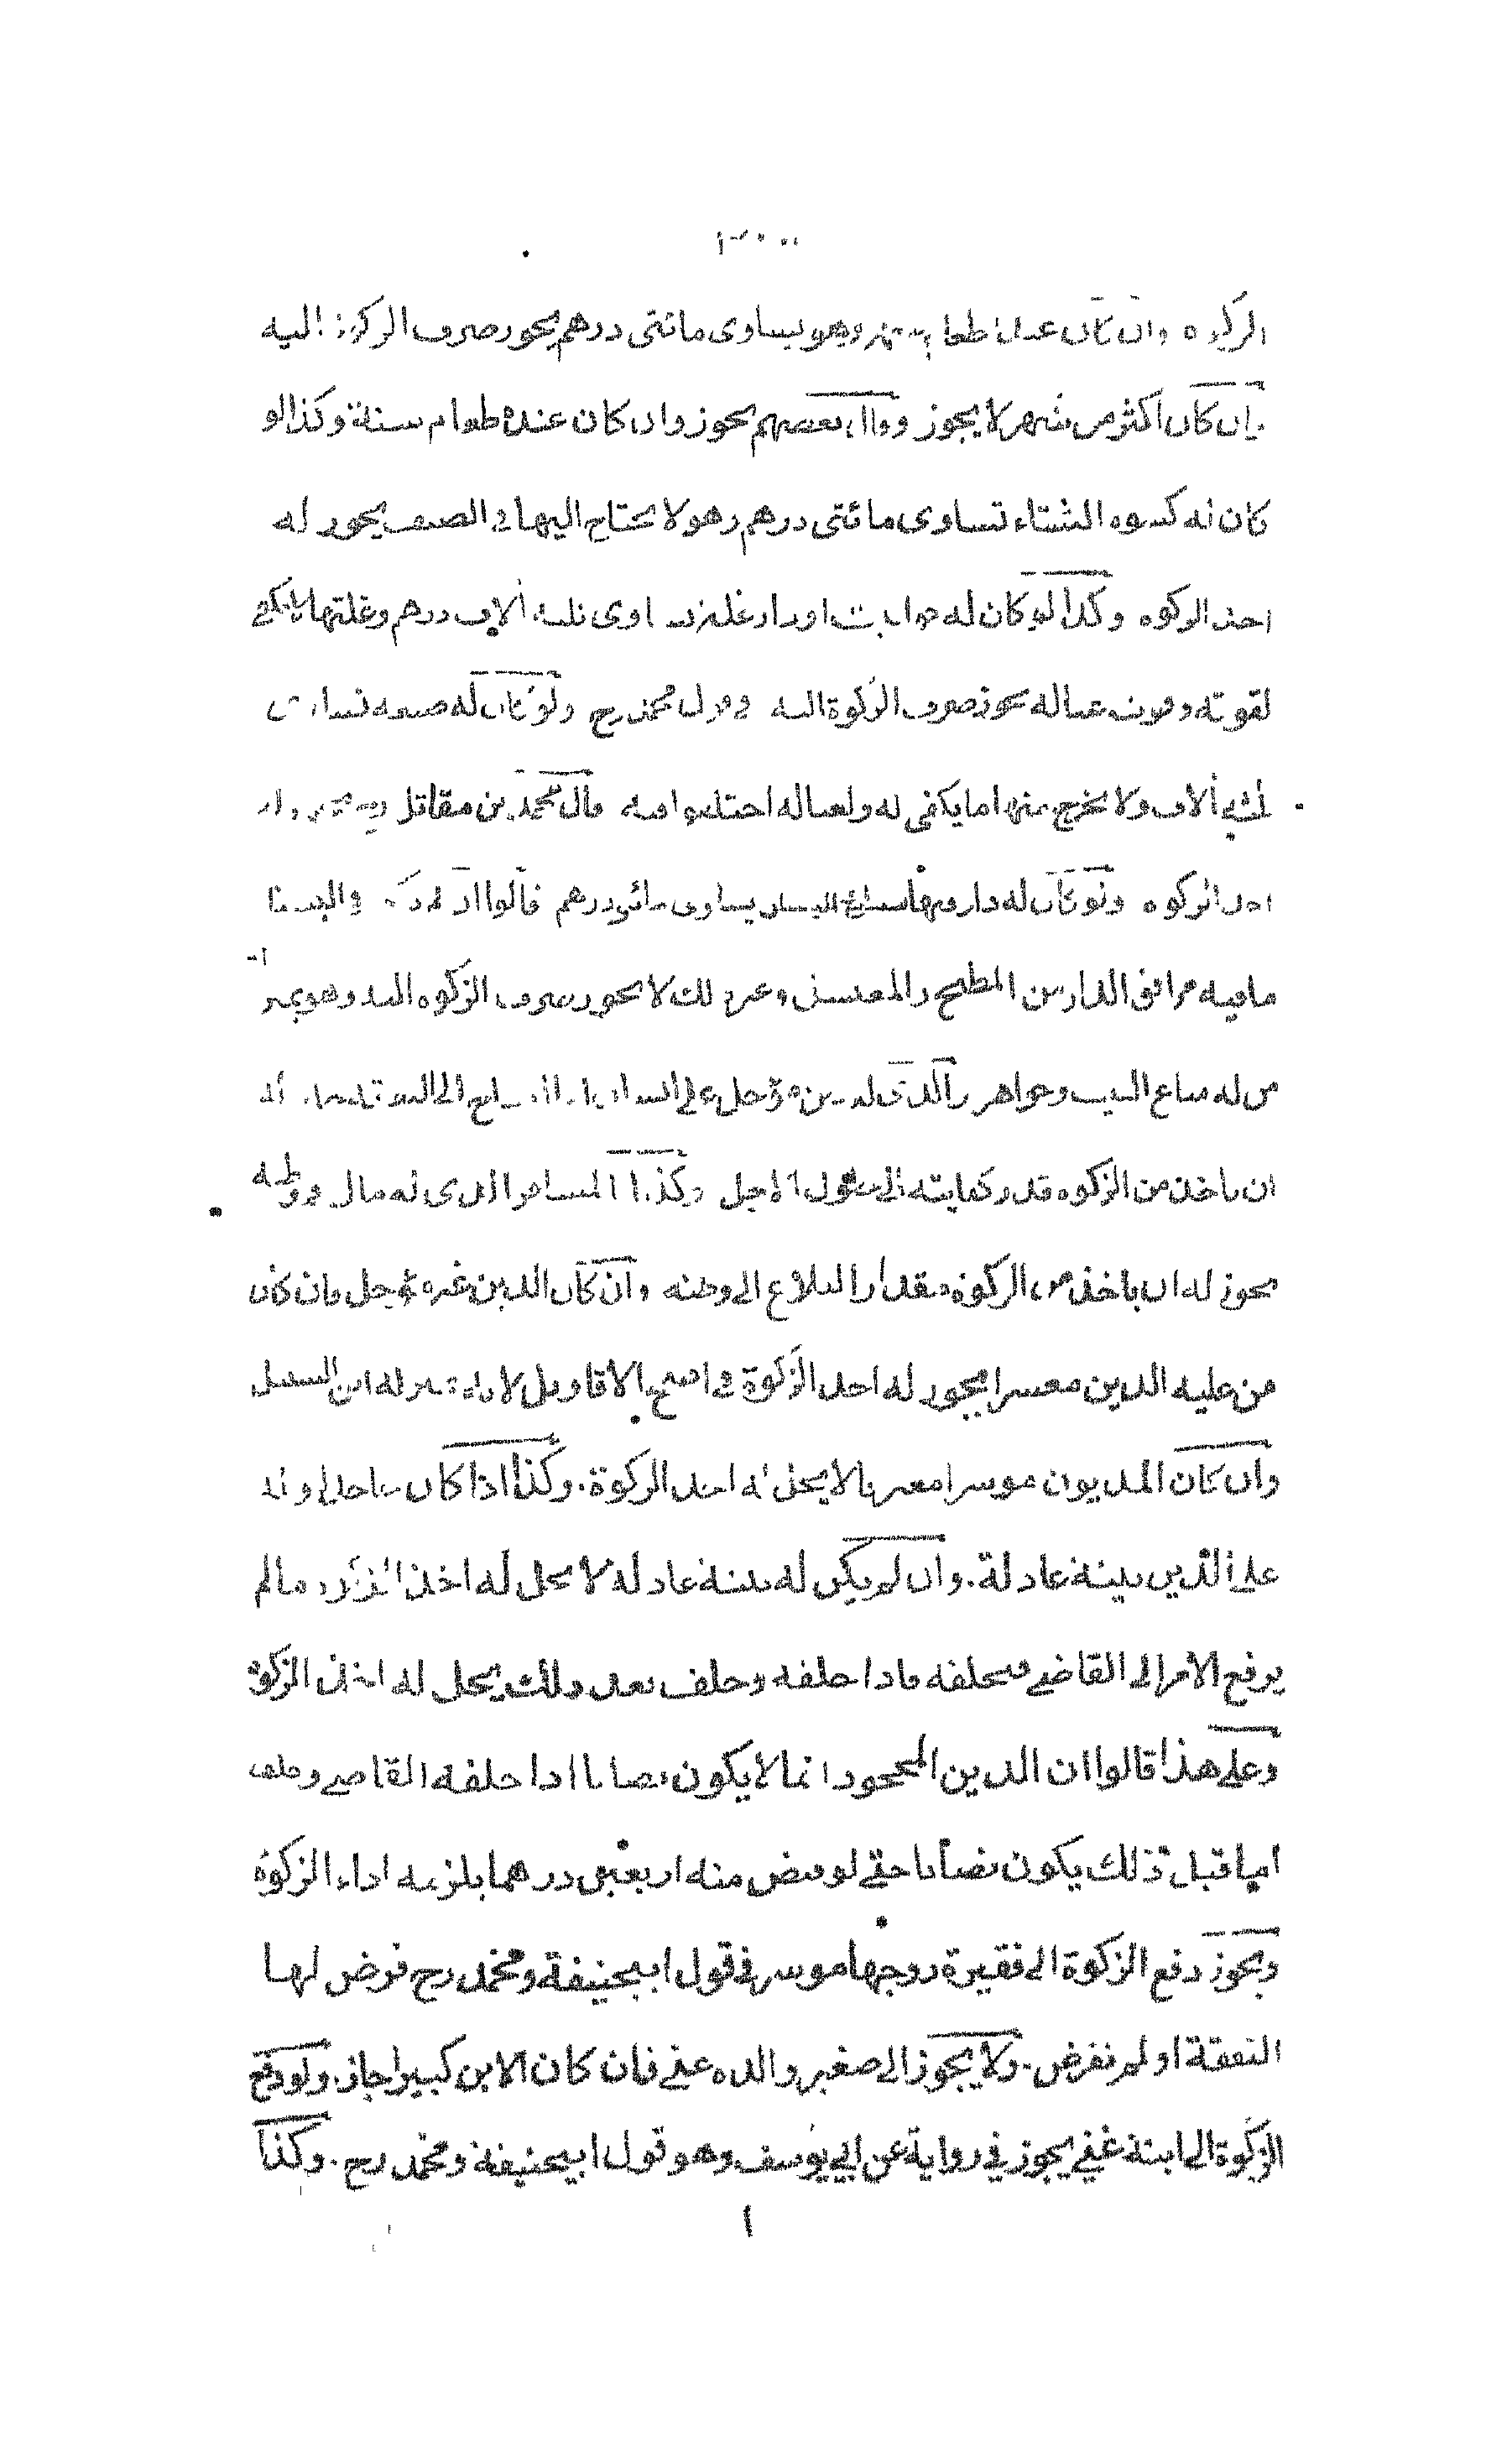 الزكوة وان كان عنده طعام شهر وهو يساوى مائتى درهم يجوز صرف الزكوة اليه
وان كان اكثر من شهر لا يجوز وقال بعضهم يجوز وان كان عنده طعام سنة وكذا لو
كان له كسوه الشتاء تساوى مائتى درهم وهو لا يحتاج اليها فى الصيف يجوز له
اخذ الزكوه وكذا لو كان له حوانيت او دار غلة تساوى ثلثه الاف درهم وغلتها لا يكفى
لقوته وقوت عياله يجوز صرف الزكوة اليه فى قول محمد رح ولو كان له ضيعه تساوى
ثلثة الاف ولا يخرج منها ما يكفى له ولعياله اختلفوا فيه قال محمد بن مقاتل يجوز له
اخذ الزكوه ولو كان له دار وفيها بستان البستان يساوى مائتى درهم قالوا ان لم يكن فى البستان
ما فيه مرافق الدار من المطبخ والمغتسل وغير ذلك لا يجوز صرف الزكوه اليه وهو بمنزلة
من له متاع البيت وجواهر والذى له دين مؤجل على انسان اذا احتاج الى النفقة يجوز له
ان ياخذ من الزكوه قدر كفايته الى حلول الاجل وكذا المسافر الذى له مال فى وطنه
يجوز له ان ياخذ من الزكوة مقدار البلاغ الى وطنه وان كان الدين غير مؤجل فان كان
من عليه الدين معسرا يجوز له اخذ الزكوة فى اصح الاقاويل لانه بمنزله ابن السبيل
وان كان المديون موسرا معترفا لا يحل له اخذ الزكوة. وكذا اذا كان جاحدا وله
على الدين بينة عادلة. وان لم يكن له بينة عادلة لا يحل له اخذ الزكوة ما لم
يرفع الامر الى القاضى فيحلفه فاذا حلفه وحلف بعد ذلك يحل له اخذ الزكوة
وعلى هذا قالوا ان الدين المجحود انما لا يكون نصابا اذا حلفه القاضى وحلف
اما قبل ذلك يكون نصابا حتى لو قبض منه اربعين درهما يلزمه اداء الزكوة
ويجوز دفع الزكوة الى فقيرة زوجها موسر فى قول ابيحنيفة ومحمد رح فرض لها
النفقة او لم نفرض. ولا يجوز الى صغير والده غنى فان كان الابن كبيرا جاز. ولو دفع
الزكوة الى ابنة غنى يجوز فى رواية عن ابى يوسف وهو قول ابيحنيفة ومحمد رح. وكذا